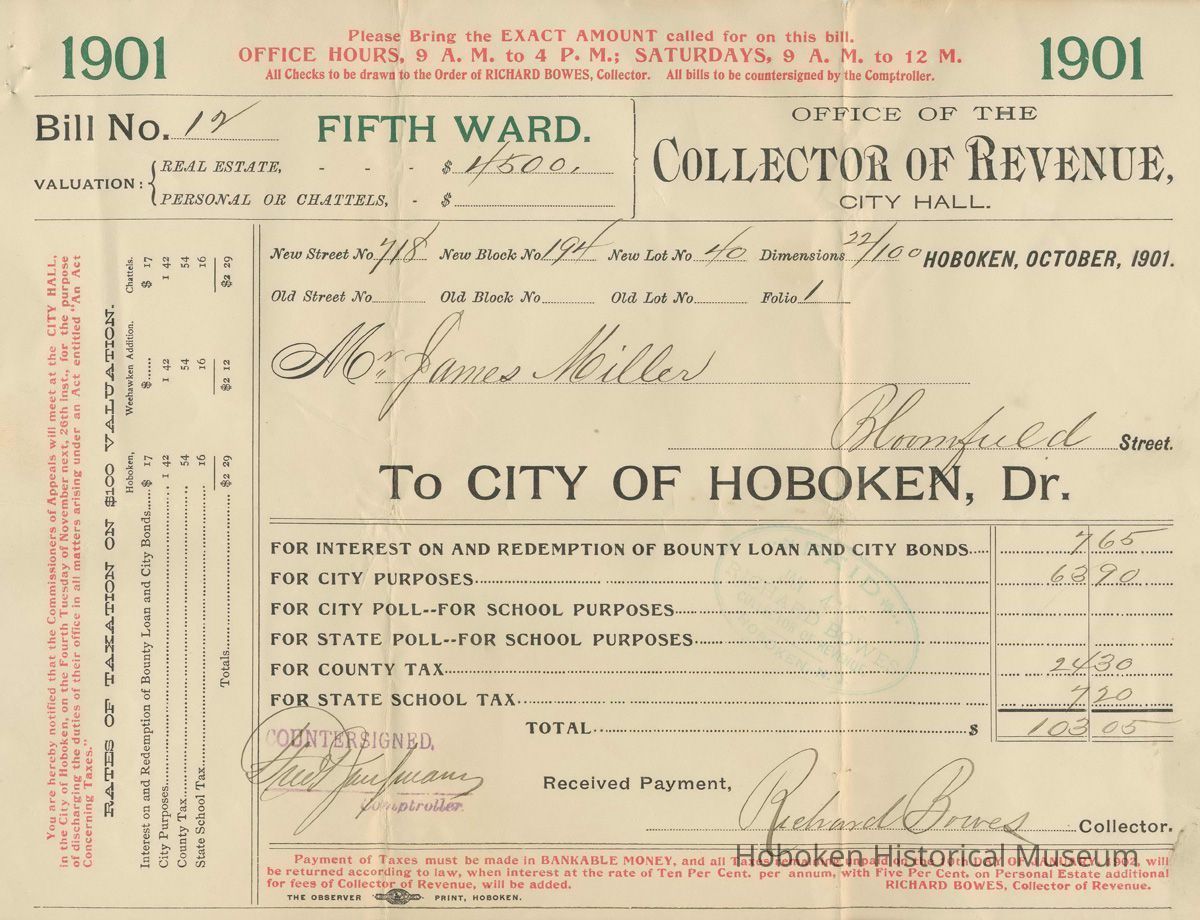 1901
Please Bring the EXACT AMOUNT called for on this bill.
OFFICE HOURS, 9 A. M. to 4 P. M.; SATURDAYS, 9 A. M. to 12 M.
All Checks to be drawn to the Order of RICHARD BOWES, Collector. All bills to be countersigned by the Comptroller.
1901
Bill No. 12 FIFTH WARD.
VALUATION: REAL ESTATE, - - - $ 4500.
PERSONAL OR CHATTELS, - $
OFFICE OF THE
COLLECTOR OF REVENUE,
CITY HALL.
You are hereby notified that the Commissioners of Appeals will meet at the CITY HALL,
in the City of Hoboken, on the Fourth Tuesday of November next, 26th inst., for the purpose
of discharging the duties of their office in all matters arising under an Act entitled "An Act
Concerning Taxes."
RATES OF TAXATION ON $100 VALUATION.
Hoboken, Weehawken Addition. Chattels.
Interest on and Redemption of Bounty Loan and City Bonds....$ 17 $...... $ 17
City Purposes... 1 42 1 42 1 42
County Tax... 54 54 54
State School Tax... 16 16 16
Totals... $2 29 $2 12 $2 29
New Street No. 718 New Block No. 194 New Lot No. 40 Dimensions 22/100 HOBOKEN, OCTOBER, 1901.
Old Street No. Old Block No. Old Lot No. Folio 1
Mr James Miller
Bloomfield Street.
To CITY OF HOBOKEN, Dr.
FOR INTEREST ON AND REDEMPTION OF BOUNTY LOAN AND CITY BONDS.... 7 65
FOR CITY PURPOSES... 63 90
FOR CITY POLL--FOR SCHOOL PURPOSES...
FOR STATE POLL--FOR SCHOOL PURPOSES...
FOR COUNTY TAX... 24 30
FOR STATE SCHOOL TAX... 7 20
TOTAL... $ 103 05
PAID
RICHARD BOWES
COLLECTOR OF REVENUE
HOBOKEN
COUNTERSIGNED,
Comptroller.
Received Payment,
Richard Bowes Collector.
Payment of Taxes must be made in BANKABLE MONEY, and all Taxes remaining unpaid on the 10th DAY OF JANUARY, 1902, will
be returned according to law, when interest at the rate of Ten Per Cent. per annum, with Five Per Cent. on Personal Estate additional
for fees of Collector of Revenue, will be added. RICHARD BOWES, Collector of Revenue.
THE OBSERVER PRINT, HOBOKEN.
Hoboken Historical Museum